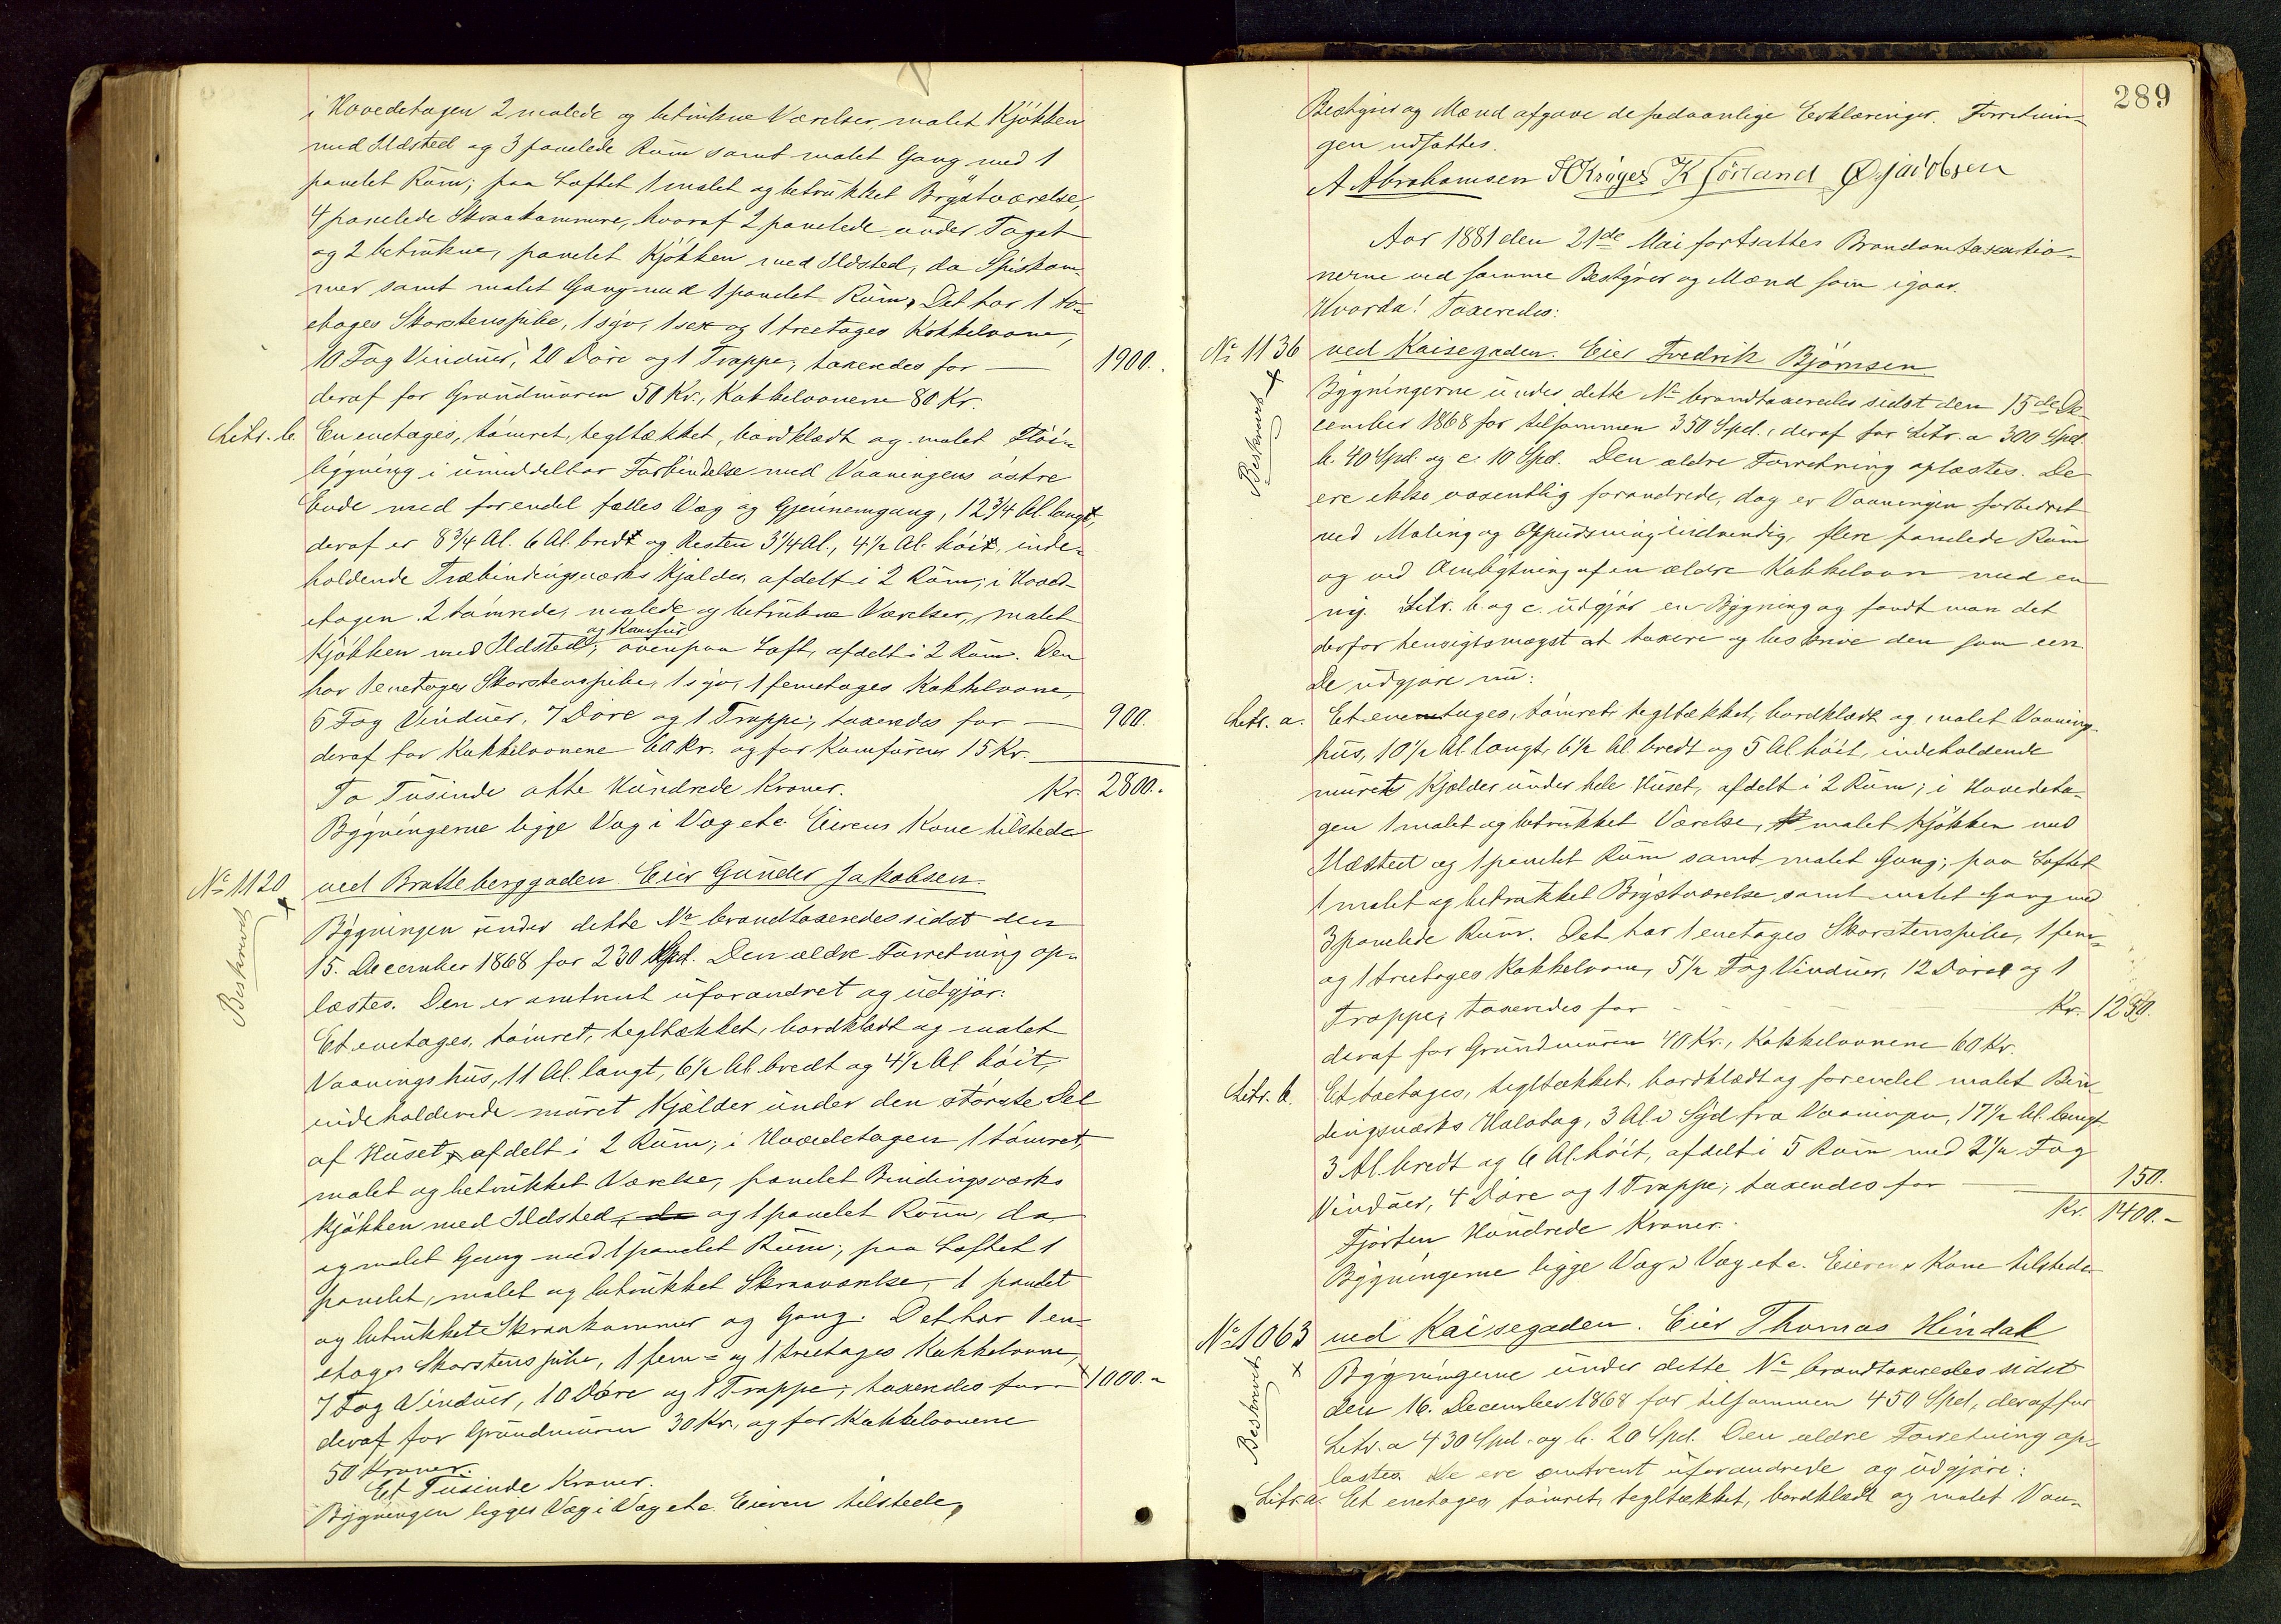 i Hovedetagen 2 malede og betrukne Værelser, malet Kjøkken
med Ildsted og 3 panelede Rum samt malet Gang med 1
panelet Rum; paa Loftet 1 malet og betrukket Brystværelse,
4 panelede Skraakammere, hvoraf 2 panelede under Taget
og 2 betrukne, panelet Kjøkken med Ildsted, do Spiskam-
mer samt malet Gang med 1 panelet Rum. Det har 1 to-
etages Skorstenspibe, 1 syv, 1 sex og 1 treetages Kakkelovne,
10 Fag Vinduer, 20 Døre og 1 Trappe; taxeredes for — 1900.
deraf for Grundmuren 50 Kr., Kakkelovnene 80 Kr.
Litr. b. En enetages, tømret, tegltækket, bordklædt og malet Fløi-
bygning i umiddelbar Forbindelse med Vaaningens østre
Ende med forendel fælles Væg og Gjennemgang, 12 3/4 Al. langt,
deraf er 8 3/4 Al. 6 Al. bredt og Resten 3 1/4 Al., 4 1/2 Al. høit, inde-
holdende Træbindingsværks Kjelder, afdelt i 2 Rum; i Hoved-
etagen 2 tømrede, malede og betrukne Værelser, malet
Kjøkken med Ildsted og Komfur; ovenpaa Loft, afdelt i 2 Rum. Den
har 1 enetages Skorstenspibe, 1 syv, 1 femetages Kakkelovne,
6 Fag Vinduer, 7 Døre og 1 Trappe; taxeredes for — 900.
deraf for Kakkelovnene 60 Kr. og for Komfuren 15 Kr.
To Tusinde otte Hundrede Kroner. Kr. 2800.-
Bygningerne ligge Væg i Væg etc. Eierens Kone tilstede
No 1120 ved Bratteberggaden. Eier Gunder Jakobsen.
Beskrevet
Bygningen under dette No brandtaxeredes sidst den
15. December 1868 for 230 Spd. Den ældre Forretning op-
læstes. Den er omtrent uforandret og udgjør:
Et enetages, tømret, tegltækket, bordklædt og malet
Vaaningshus, 11 Al. langt, 6 1/2 Al. bredt og 4 1/2 Al høit,
indeholdende muret Kjelder under den største Del
af Huset, afdelt i 2 Rum; i Hovedetagen 1 tømret,
malet og betrukket Værelse, panelet Bindingsværks
Kjøkken med Ildsted, do og 1 panelet Rum, do
og malet Gang med 1 panelet Rum; paa Loftet 1
panelet, malet og betrukket Skraaværelse, 1 panelet
og betrukket Skraakammer og Gang. Det har 1 en-
etages Skorstenspibe, 1 fem- og 1 treetages Kakkelovne,
7 Fag Vinduer, 10 Døre og 1 Trappe; taxeredes for — 1000.-
deraf for Grundmuren 30 Kr., og for Kakkelovnene
50 Kroner.
Et Tusinde Kroner.
Bygningen ligger Væg i Væg etc. Eieren tilstede,
289
Bestyrer og Mænd afgave de sædvanlige Erklæringer. Forretnin-
gen udsattes.
A Abrahamsen H Krøger K Sørland Ø Jacobsen
Aar 1881 den 21de Mai fortsattes Brandomtaxatio-
nerne ved samme Bestyrer og Mænd som igaar.
Hvorda! Taxeredes:
No 1136 ved Kaisegaden. Eier Fredrik Bjørnsen
Beskrevet
Bygningerne under dette No brandtaxeredes sidst den 15de De-
cember 1868 for tilsammen 350 Spd., deraf for Litr. a 300 Spd.
b. 40 Spd. og c. 10 Spd. Den ældre Forretning oplæstes. De
ere ikke væsentlig forandrede, dog er Vaaningen forbedret
ved Maling og Oppudsning indvendig, flere panelede Rum
og ved Ombytning af en ældre Kakkelovn med en
ny. Litr. b. og c. udgjør en Bygning og fandt man det
derfor hensigtsmægst at taxere og beskrive den som een.
De udgjøre nu:
Litr. a. Et enetages, tømret, tegltækket, bordklædt og malet Vaanings-
hus, 10 1/2 Al. langt, 6 1/2 Al. bredt og 5 Al høit, indeholdende
muret Kjelder under hele Huset, afdelt i 2 Rum; i Hovedeta-
gen 1 malet og betrukket Værelse, malet Kjøkken med
Ildsted og 1 panelet Rum samt malet Gang; paa Loftet
1 malet og betrukket Brystværelse samt malet Gang med
3 panelede Rum. Det har 1 enetages Skorstenspibe, 1 fem-
og 1 treetages Kakkelovne, 5 1/2 Fag Vinduer, 12 Døre og 1
Trappe; taxeredes for — Kr. 1250.
deraf for Grundmuren 40 Kr., Kakkelovnene 60 Kr.
Litr. b. Et toetages, tegltækket, bordklædt og forendel malet Bin-
dingsværks Halvtag, 3 Al. i Syd fra Vaaningen, 17 1/2 Al. langt
3 Al. bredt og 6 Al. høit, afdelt i 5 Rum med 2 1/2 Fag
Vinduer, 4 Døre og 1 Trappe; taxeredes for — 150.
Fjorten Hundrede Kroner. Kr. 1400.-
Bygningerne ligge Væg i Væg etc. Eierens Kone tilstede
No 1063 ved Kaisegaden. Eier Thomas Hindal
Beskrevet
Bygningerne under dette No brandtaxeredes sidst
den 16. December 1868 for tilsammen 450 Spd, deraf for
Litr. a 430 Spd. og b. 20 Spd. Den ældre Forretning op-
læstes. De ere omtrent uforandrede og udgjøre:
Litr. a. Et enetages, tømret, tegltækket, bordklædt og malet Vaa-